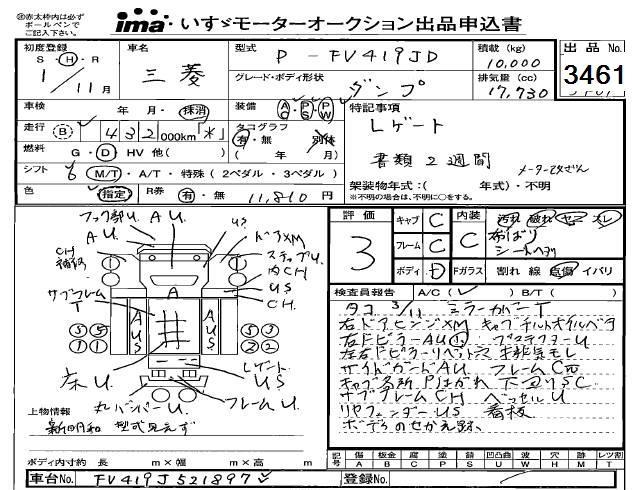 ㊟赤太枠内は必ず
ボールペンで
ご記入下さい。
ima いすゞモーターオークション出品申込書
初度登録
S・H・R
1/11月
車名
三菱
型式
P-FV419JD
積載(kg)
10,000
出品No.
3461
グレード・ボディ形状
ダンプ
排気量(cc)
17,730
車検
年・月・抹消
装備
AC PS PW
特記事項
Lゲート
書類2週間
メーター2改ざん
走行
(B) 432,000km *
タコグラフ
有・無 別体
(年/月)
燃料
G・D・HV 他( )
シフト
6 M/T・A/T・特殊(2ペダル・3ペダル)
架装物年式:( 年式)・不明
※不明の場合は、不明に○をする。
色
指定
R券
有・無 11,810円
評価
3
キャブ C
フレーム C
ボディ D
内装
C
汚れ 破れ コゲ スレ
布ばり
シートヘタリ
Fガラス
割れ 線 点傷 イバリ
検査員報告
A/C( ) B/T( )
タコ 3/11 ミラーカバーT
右ドアヒンジXM キャブチルトオイルベタ
右ドピラーAU
サイドガードAU フレームC
下回りSC
サブフレームCH ベッセルU
リヤフェンダーUS 看板
ボデーのせかえ跡.
フック部U AU
AU
US
ドアXM
ステップU
内CH
US
CH
CH
サブフレーム
T
A
AUS
AUS
5 5
1 1
5 5
2 2
床U
Lゲート
US
丸バンパーU.
フレームU
上物情報
新明和 型式見えず
ボディ内寸約 長 m×幅 m×高 m
記号
傷 A
板金 B
腐 C
塗 P
錆 S
凹凸曲 U
波 W
穴 H
跡 M
交 T
車台No.
FV419J521897
登録No.